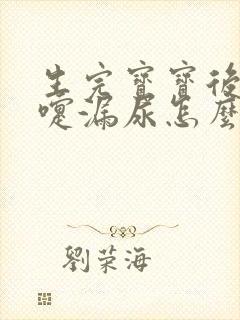 生完寶寶後
嚏漏尿怎麼
劉荣海